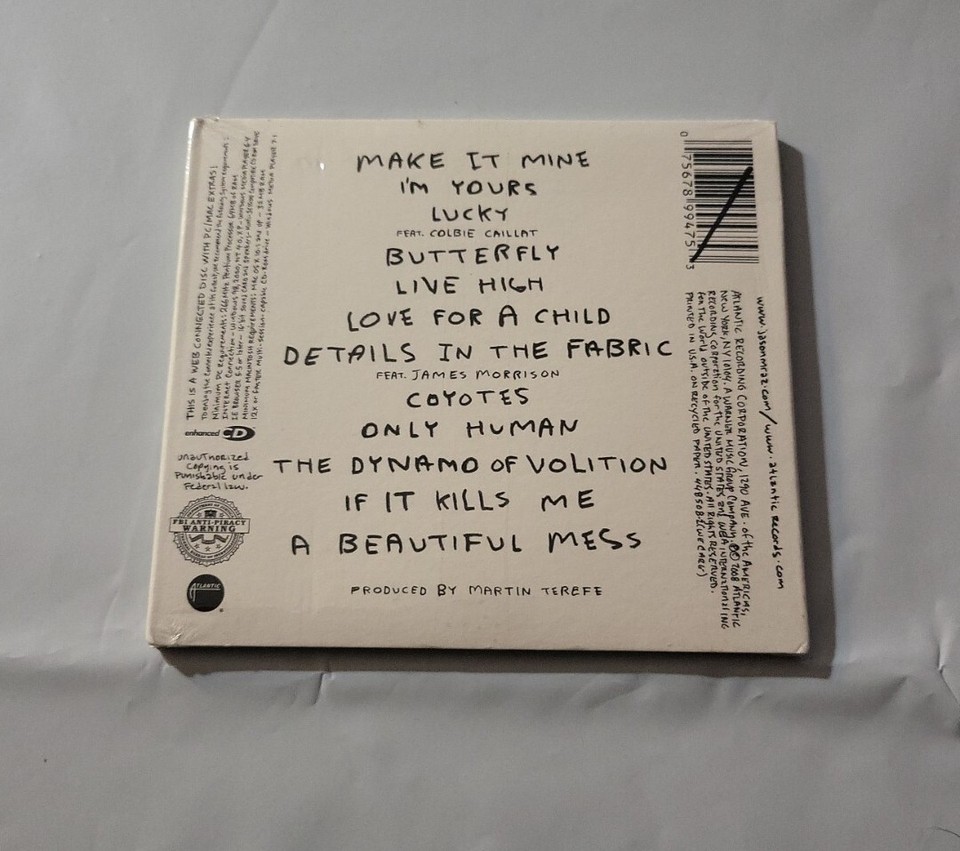 MAKE IT MINE
I'M YOURS
LUCKY
FEAT. COLBIE CAILLAT
BUTTERFLY
LIVE HIGH
LOVE FOR A CHILD
DETAILS IN THE FABRIC
FEAT. JAMES MORRISON
COYOTES
ONLY HUMAN
THE DYNAMO OF VOLITION
IF IT KILLS ME
A BEAUTIFUL MESS
PRODUCED BY MARTIN TEREFE
THIS IS A WEB CONNECTED DISC WITH PC/MAC EXTRAS!
enhanced CD
unauthorized
copying is
Punishable under
Federal law.
FBI ANTI-PIRACY
WARNING
ATLANTIC
0 75678 99475 3
www.jasonmraz.com/www.atlantic records.com
ATLANTIC RECORDING CORPORATION, 1290 AVE. of the AMERICAS,
NEW YORK, NY 10104. A WARNER MUSIC Group Company. ©℗ 2008 ATLANTIC
RECORDING Corporation for the UNITED STATES and WEA INTERNATIONAL ING
for the World outside of the UNITED STATES. All Rights RESERVED.
PRINTED IN U.S.A. ON RECYCLED PAPER. 448508-2